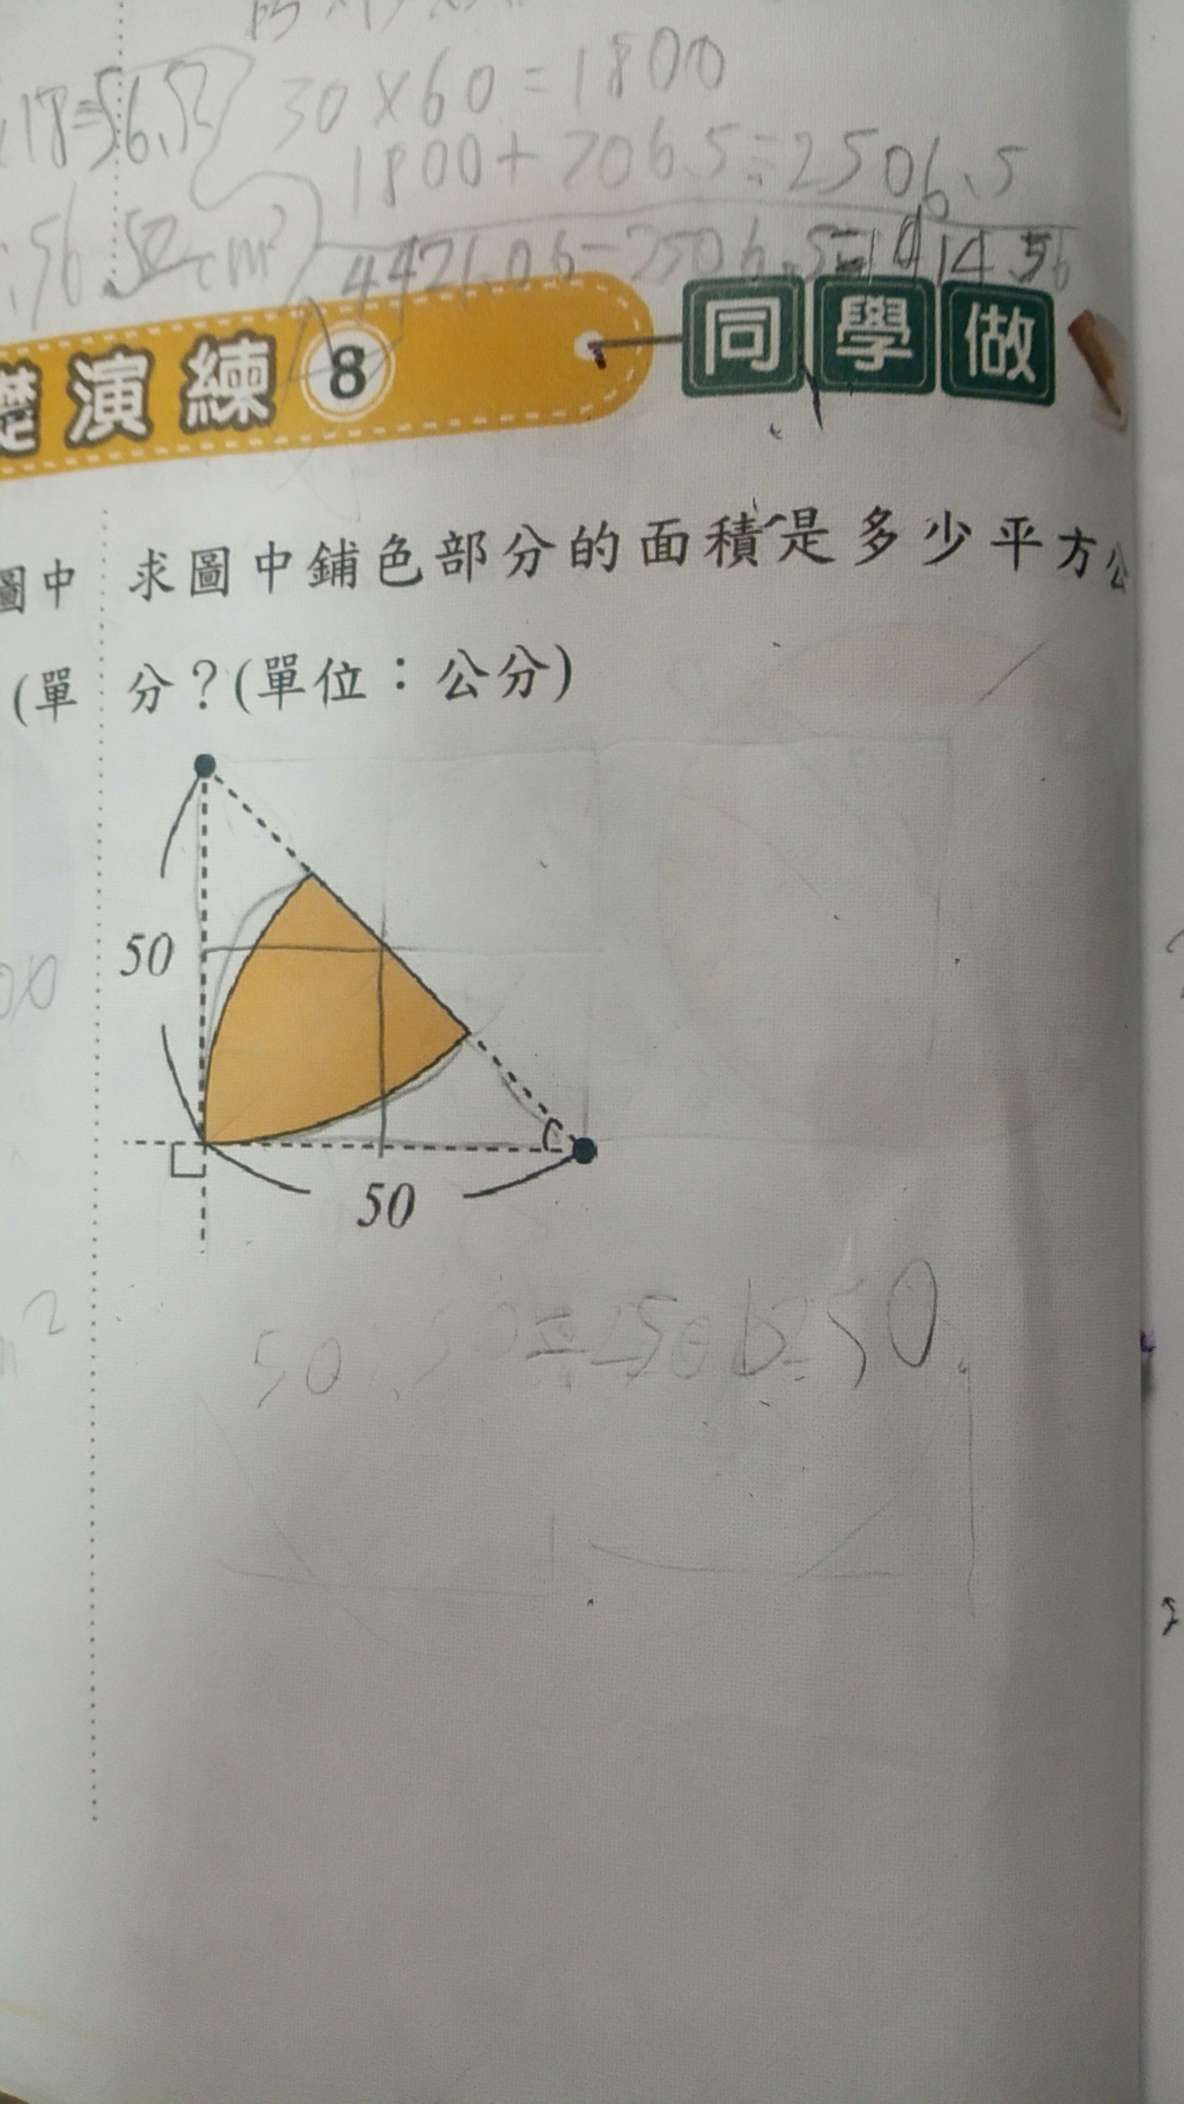 30×60=1800
18=56.52
1800+706.5=2506.5
56.52(cm²)
4421.06-2506.5=1914.56
礎演練8
同學做
圖中
求圖中鋪色部分的面積是多少平方公
(單
分？(單位：公分)
50
50
50